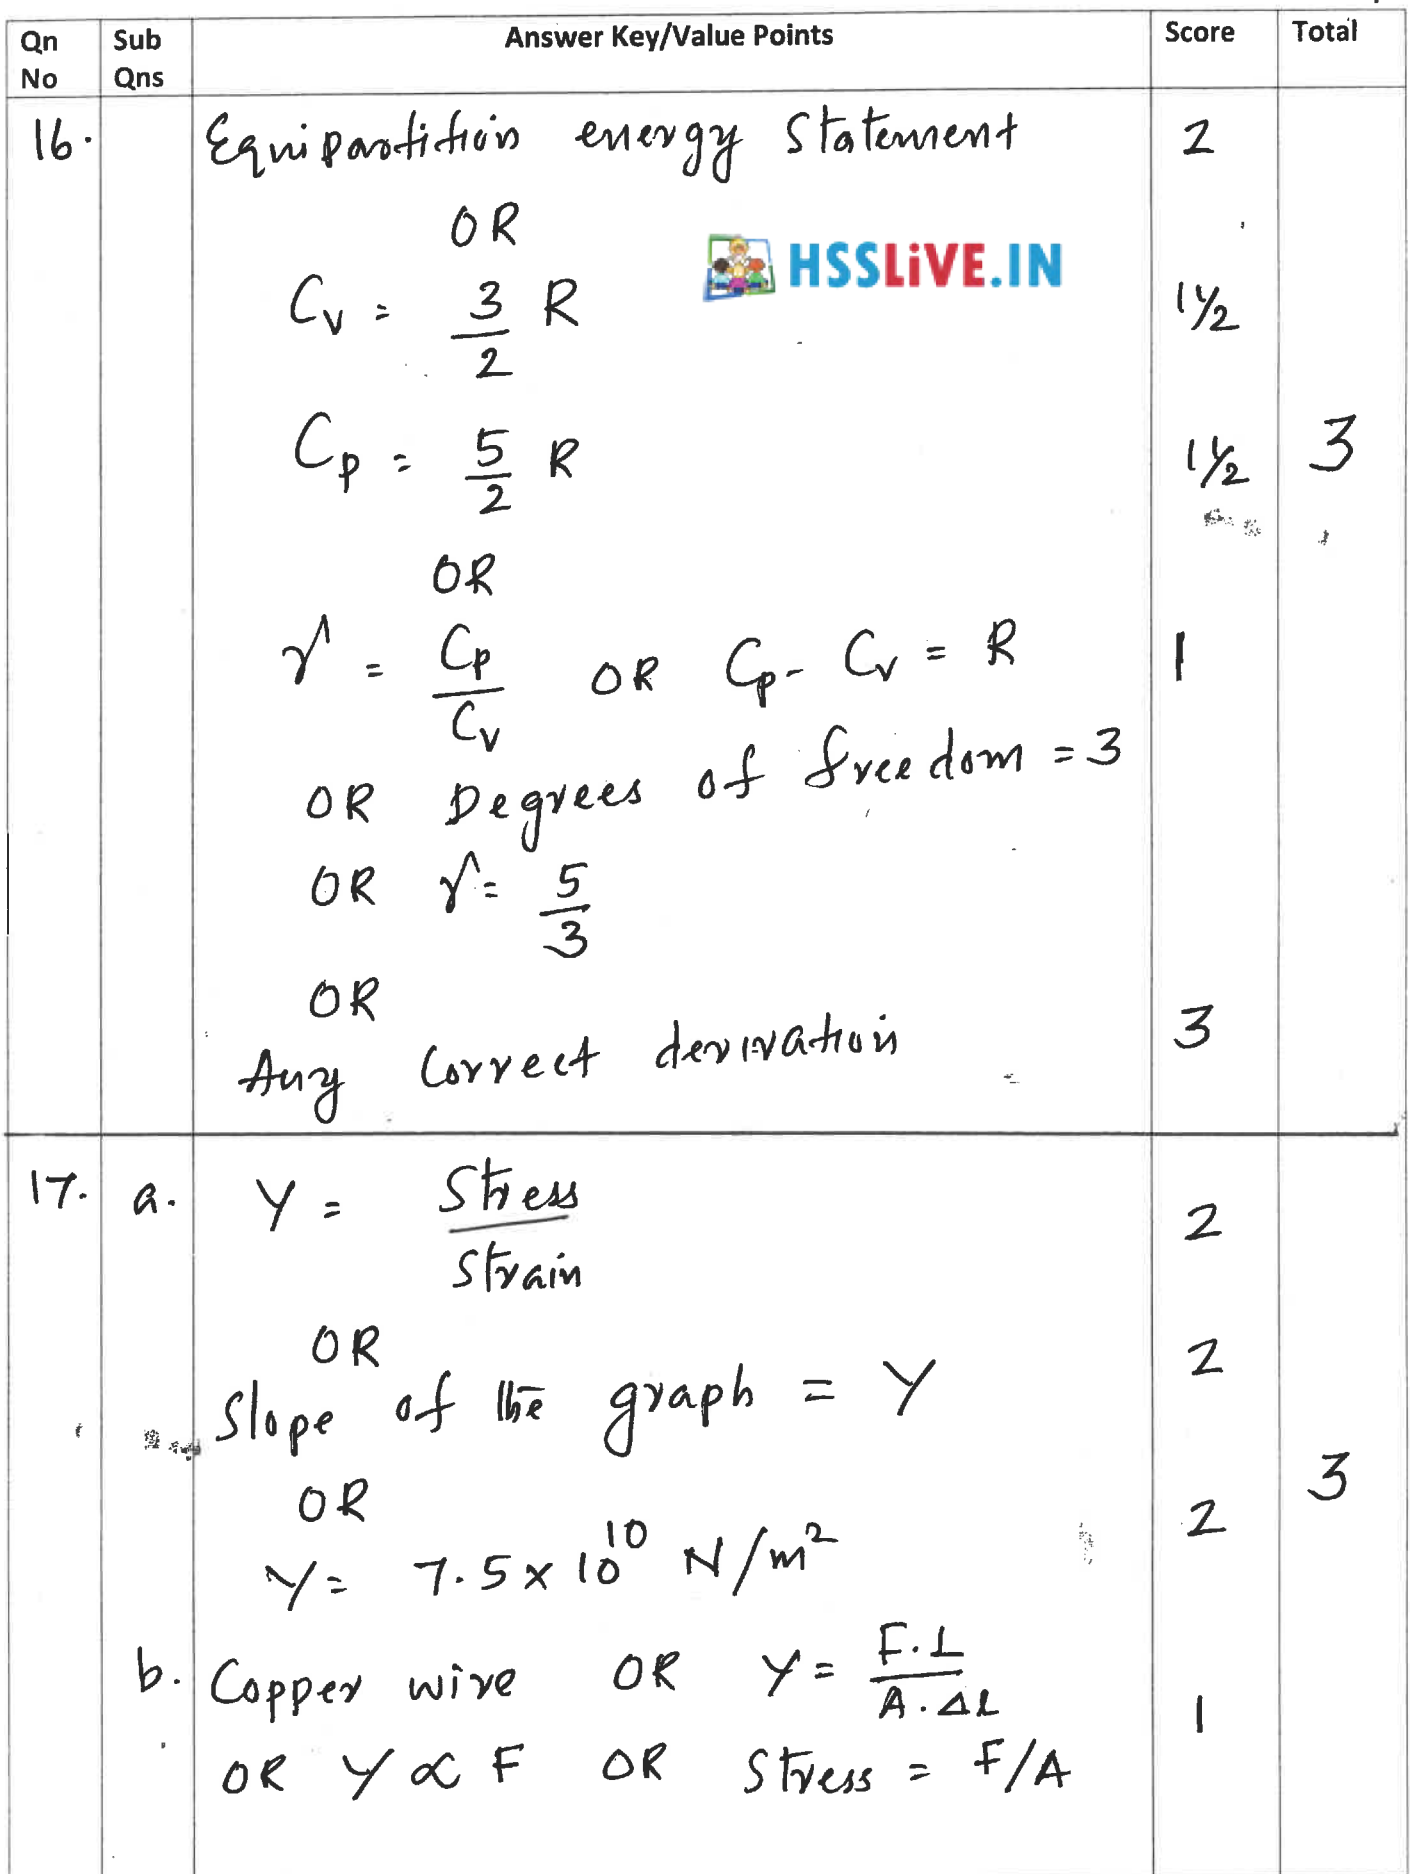 Qn No | Sub Qns | Answer Key/Value Points | Score | Total
16. Equipartition energy Statement 2
OR
HSSLiVE.IN
Cv = 3/2 R 1½
Cp = 5/2 R 1½ 3
OR
γ = Cp/Cv OR Cp - Cv = R 1
OR Degrees of freedom = 3
OR γ = 5/3
OR
Any Correct derivation 3
17. a. Y = Stress/Strain 2
OR 2
Slope of the graph = Y
3
OR 2
Y = 7.5 x 10^10 N/m²
b. Copper wire OR Y = F.L/A.Δl 1
OR Y ∝ F OR Stress = F/A